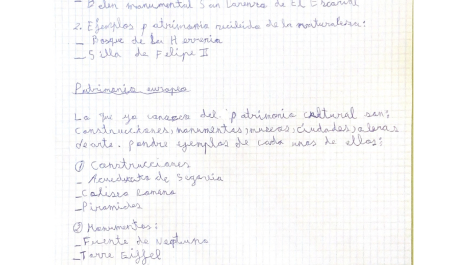 - Belén monumental San Lorenzo de El Escorial
2. Ejemplos patrimonio recibido de la naturaleza:
- Bosque de La Herrería
- Silla de Felipe II
Patrimonio europeo
Lo que yo conozco del patrimonio cultural son:
Construcciones, monumentos, museos, ciudades, obras
de arte. Pondré ejemplos de cada unos de ellos:
① Construcciones
- Acueducto de Segovia
- Coliseo Romano
- Piramides
② Monumentos:
- Fuente de Neptuno
- Torre Eiffel